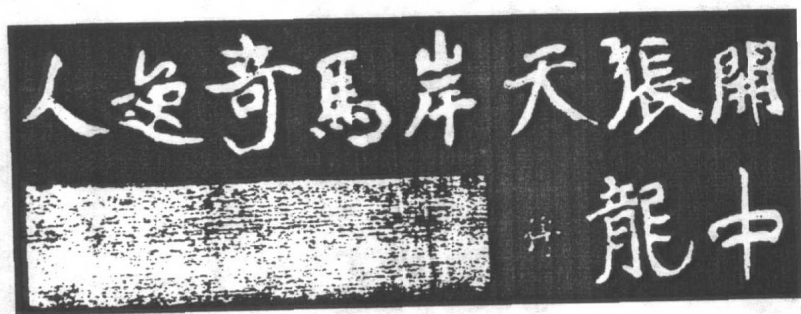 開張天岸馬奇逸人
中龍